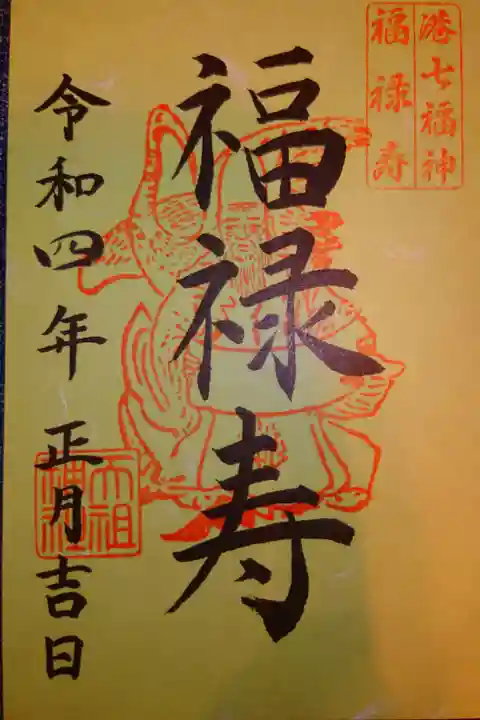 港七福神
福禄寿
福禄寿
令和四年正月吉日
天祖神社